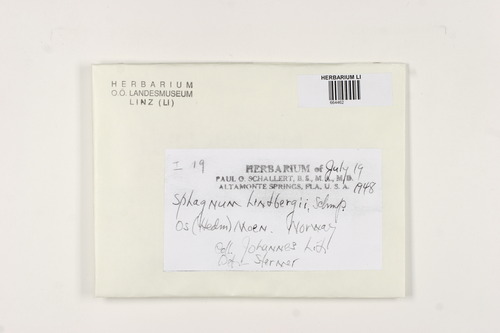 HERBARIUM
O.Ö. LANDESMUSEUM
LINZ (LI)
HERBARIUM LI
664462
I 19
HERBARIUM of July 19
PAUL O. SCHALLERT, B. S., M. A., M. D.
ALTAMONTE SPRINGS, FLA., U. S. A. 1948
Sphagnum Lindbergii, Schmp.
Os (Hedm) Moen. Norway
Coll. Johannes Lid
Det. Stermer